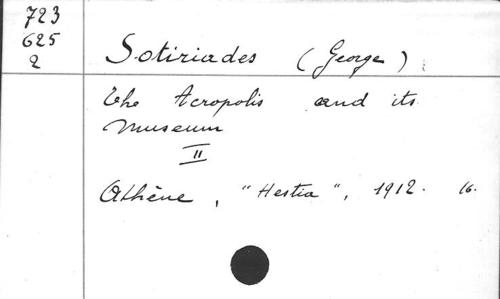 723
625
2
Sotiriades (George)
The Acropolis and its
Museum
II
Athène, "Hestia", 1912. 16.